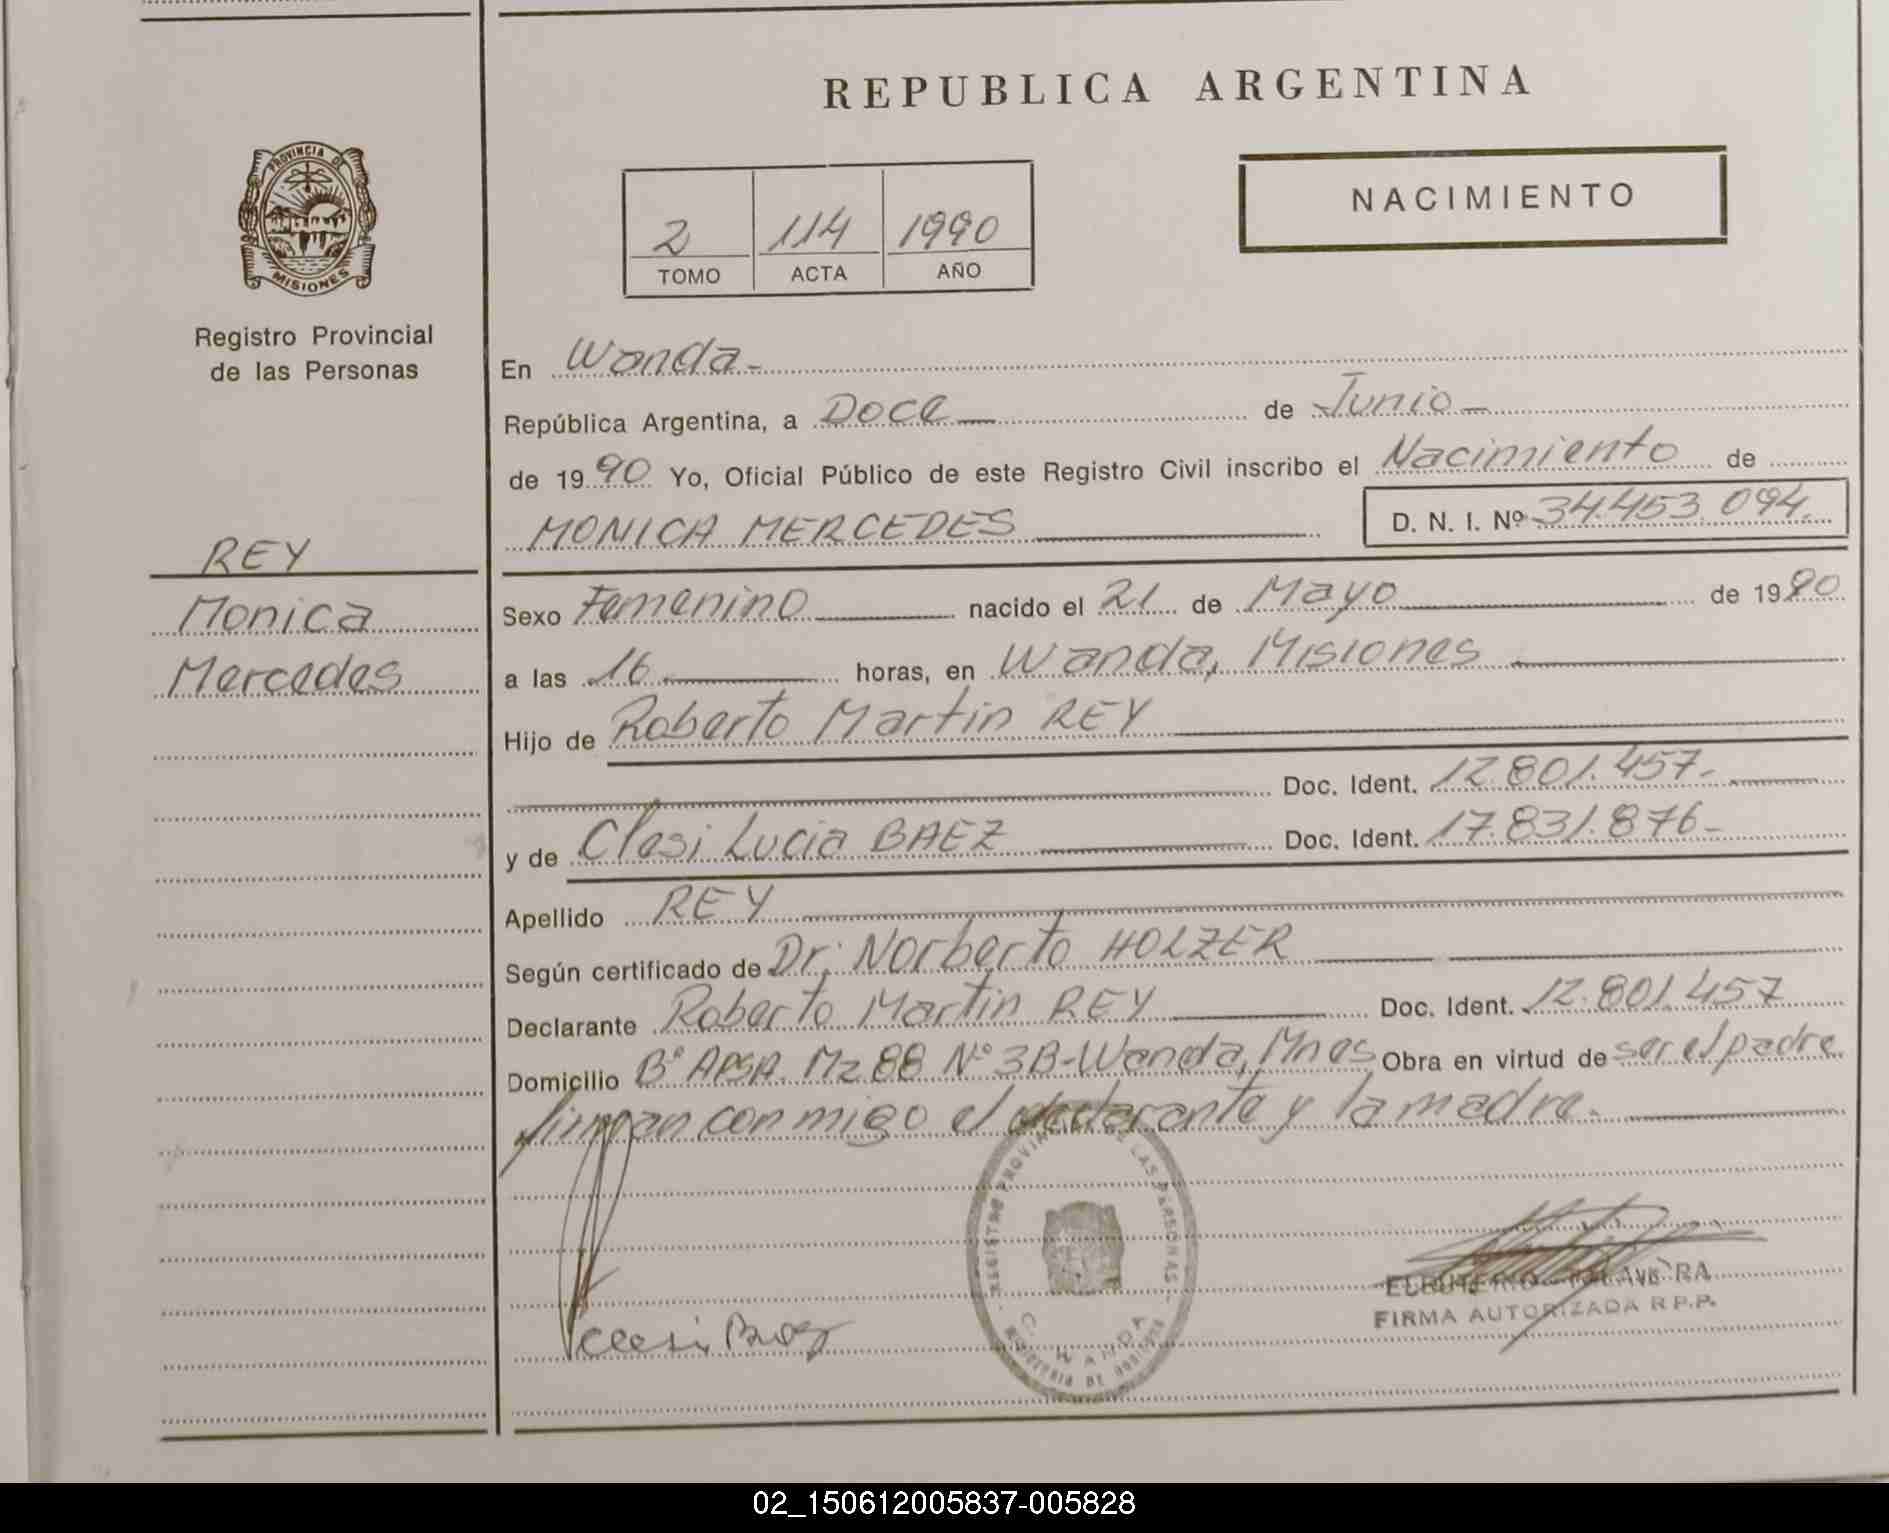 REPUBLICA ARGENTINA
PROVINCIA DE
MISIONES
Registro Provincial
de las Personas
NACIMIENTO
2 114 1990
TOMO ACTA AÑO
En Wanda.-
República Argentina, a Doce de Junio
de 1990 Yo, Oficial Público de este Registro Civil inscribo el Nacimiento de
MONICA MERCEDES D. N. I. Nº 34.453.094.
REY
Monica
Mercedes
Sexo Femenino nacido el 21 de Mayo de 1990
a las 16 horas, en Wanda, Misiones
Hijo de Roberto Martin REY
Doc. Ident. 12.801.457.-
y de Clesi Lucia BAEZ Doc. Ident. 17.831.876-
Apellido REY
Según certificado de Dr. Norberto HOLZER
Declarante Roberto Martin REY Doc. Ident. 12.801.457
Domicilio Bº APSA. Mz 88 Nº 3B-Wanda, Mnes Obra en virtud de ser el padre
firman conmigo el declarante y la madre.
REGISTRO PROVINCIAL DE LAS PERSONAS
WANDA
Clesi Baez
FIRMA AUTORIZADA R.P.P.
02_150612005837-005828